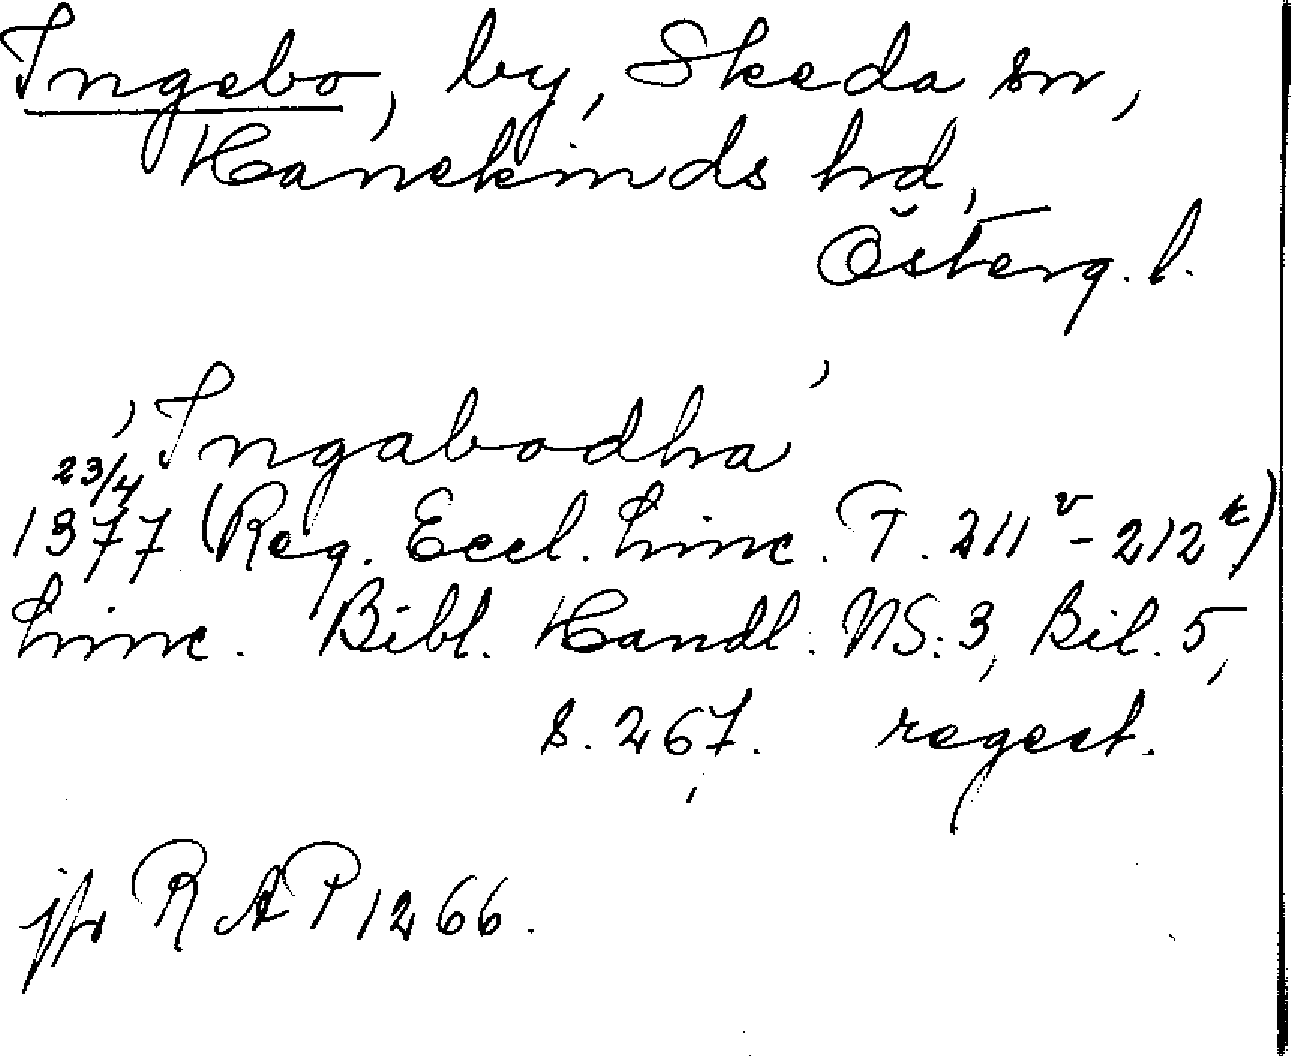 Ingebo, by, Skeda sn,
Hanekinds hd,
Österg. l.
Ingabodha
23/4
1377 (Reg. Eccl. Linc. T. 211v - 212r)
Linc. Bibl. Handl. NS: 3, Bil. 5,
s. 267. regest.
jfr RAP 1266.